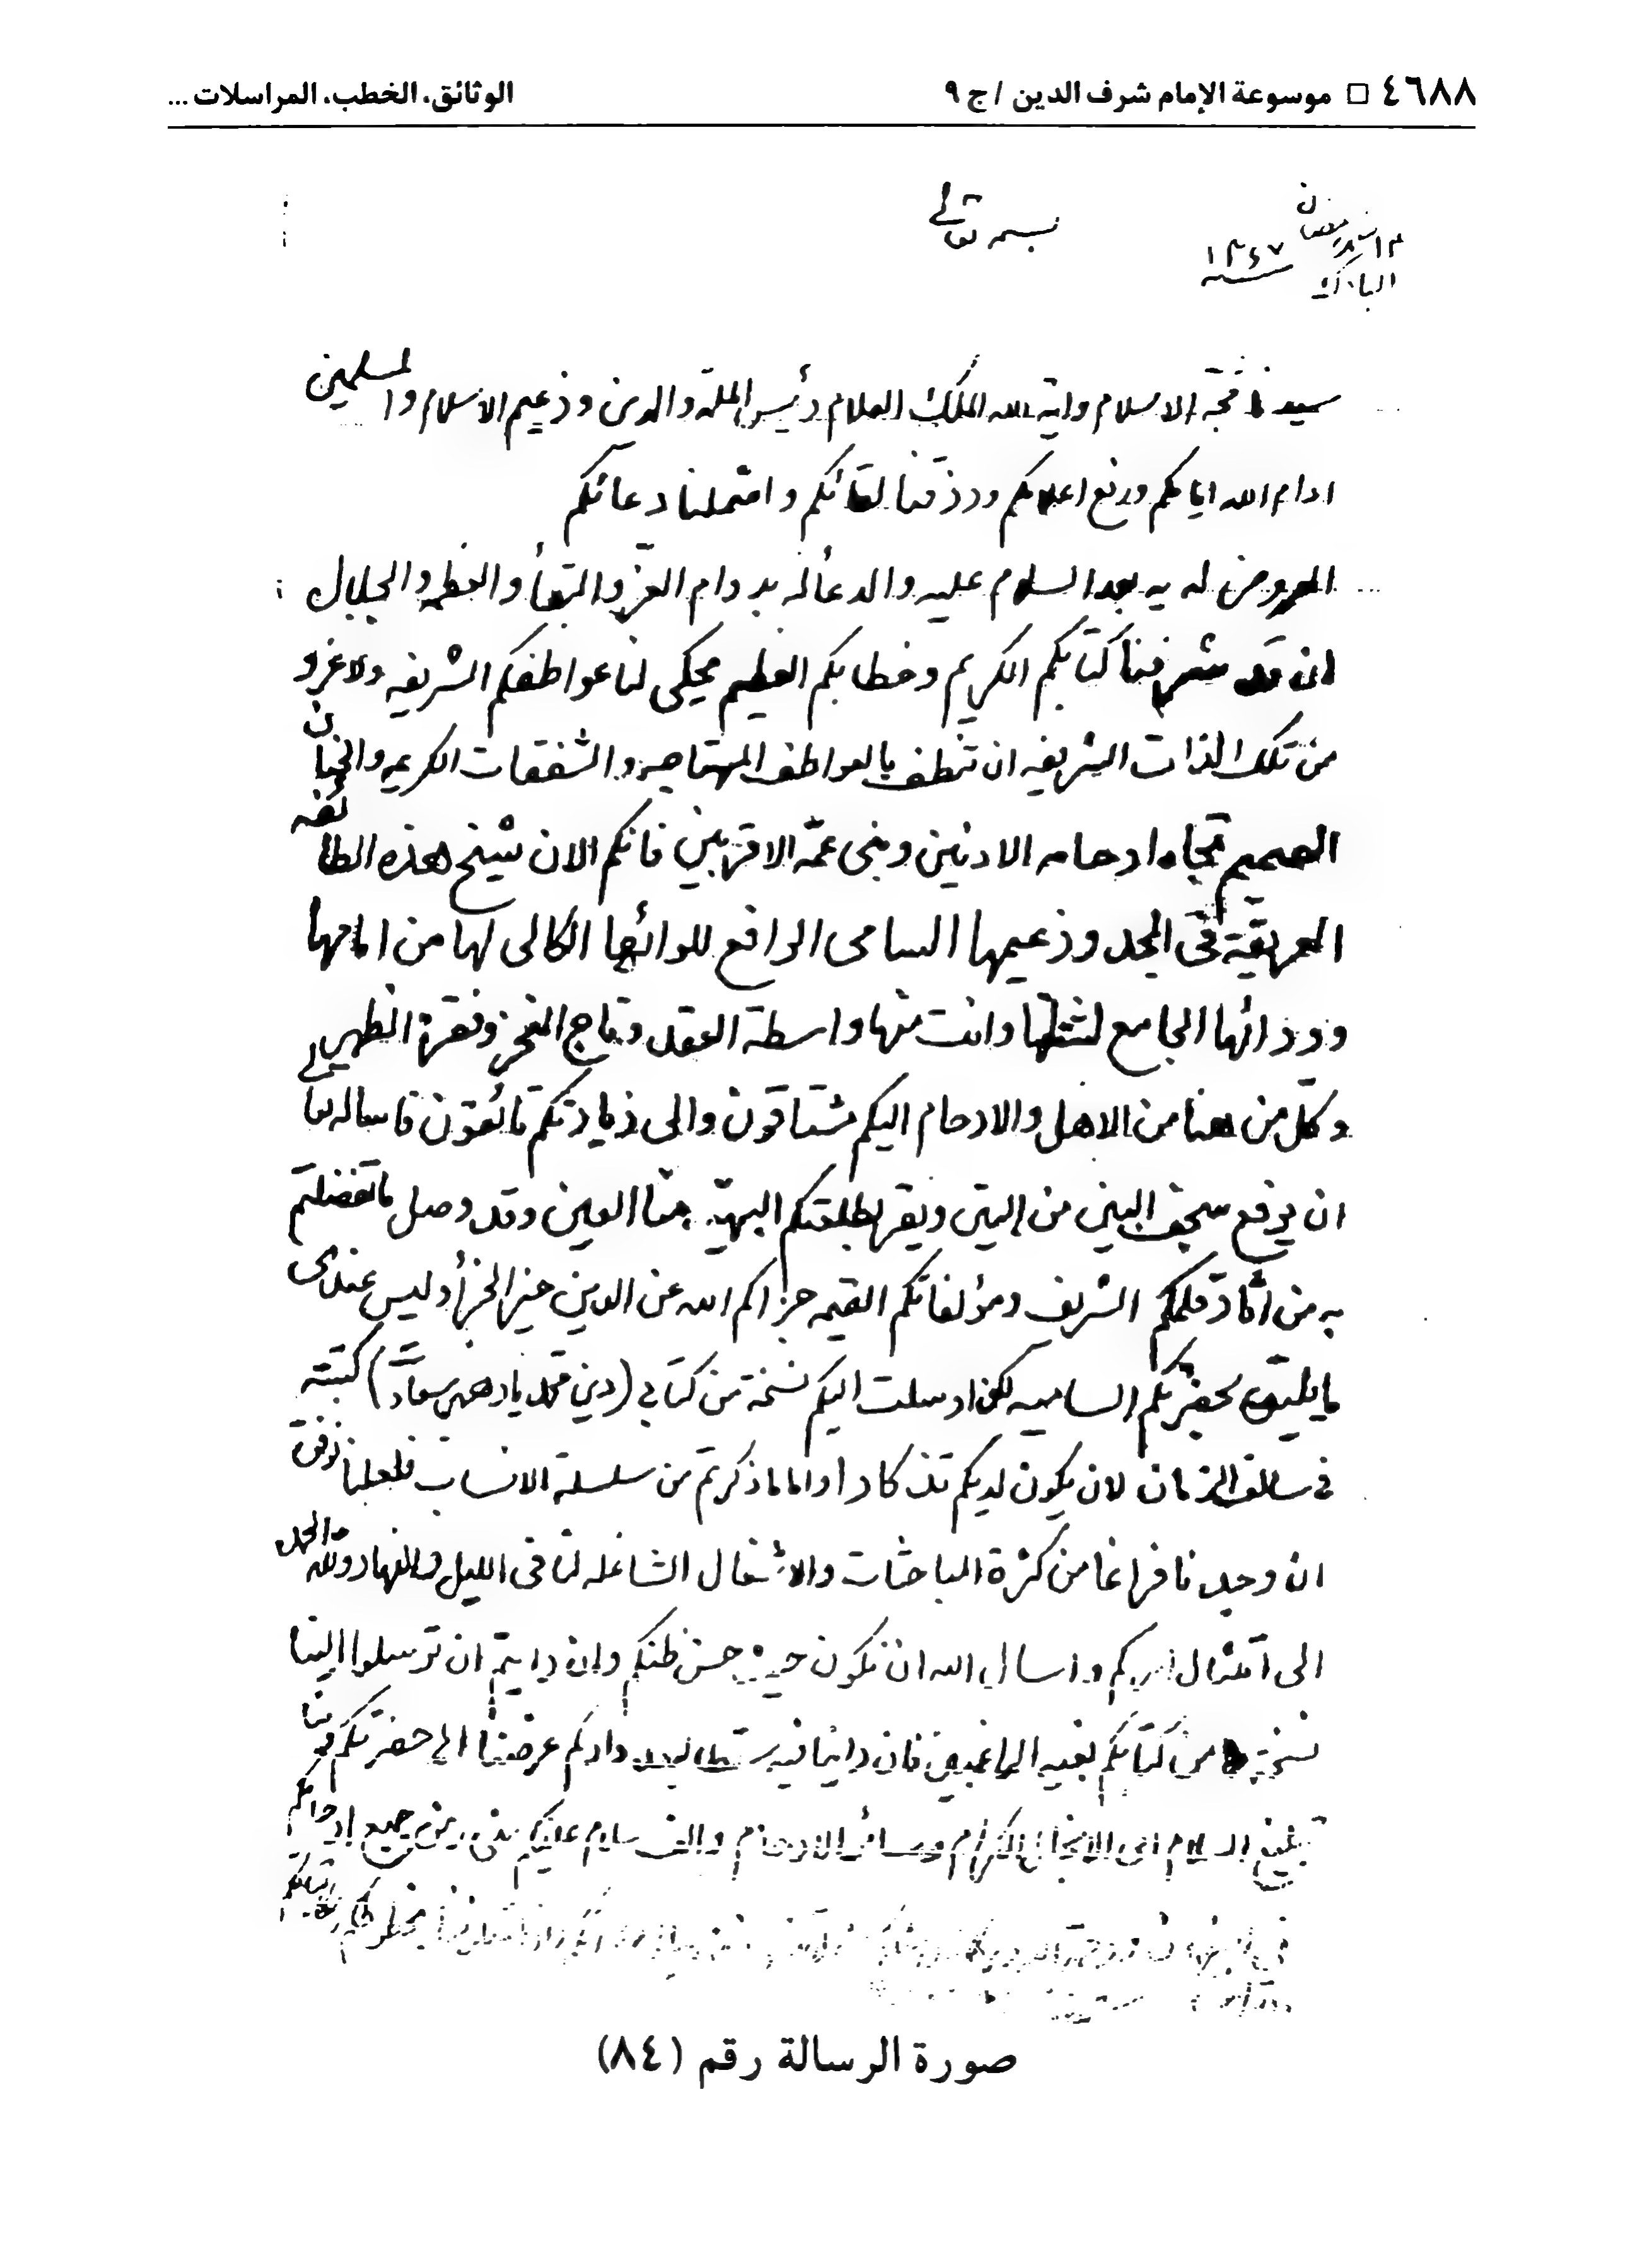 ٤٦٨٨ □ موسوعة الإمام شرف الدين / ج ٩
الوثائق، الخطب، المراسلات ...
بسمه تعالى
شهر رمضان
المبارك
سنة ١٣٤٧
سيدنا حجة الاسلام واية الله الملك العلام رئيس الملة والدين وزعيم الاسلام والمسلمين
ادام الله ايامكم ورفع اعلامكم ورزقنا لقائكم واشملنا دعائكم
المعروض لديه بعد السلام عليه والدعاء له بدوام العز والبقاء والعظمه والجلال
ان قد شرفنا كتابكم الكريم وخطابكم العظيم يحكى لنا عواطفكم الشريفه ولاغرو
من تلك الذات الشريفه ان تعطف بالعواطف والشفقات الكريمه والحنان
الصميم تجاه ارحامه الادنين وبنى عمه الاقربين فانكم الان شيخ هذه الطائفه
العريقة فى المجد وزعيمها السامى الرافع للوائها الكالى لها من امامها
وورائها الجامع لشتاتها وانت منها واسطة العقد وتاج الفخر وفقرة الظهر
وكل من هنا من الاهل والارحام اليكم مشتاقون والى زيارتكم تائقون فاساله تعالى
ان يرفع سجف البين من البين ويقر بطلعتكم البهية منا العين وقد وصل ما تفضلتم
به من اثار قلمكم الشريف ومؤلفاتكم القيمه جزاكم الله عن الدين خير الجزاء وليس عندى
ما يليق بحضرتكم الساميه لكن ارسلت اليكم نسخة من كتابي (دين محمد يا رهبر سعادت) كتبته
في سالف الزمان لان يكون لديكم تذكارا واما ما ذكرتم من سلسلة الانساب فلعلنا نوفق
ان وجدنا فراغا من كثرة المباحثات والاشغال الشاغله لنا فى الليل والنهار ولله الحمد
الى امتثال امركم واسال الله ان نكون حيث حسن ظنكم وان رايتم ان ترسلوا الينا
نسخة من كتابكم بغيه الراغبين فان راينا فيه عرضنا الى حضرتكم
تبليغ السلام الى الانجال الكرام وسائر الارحام والف سلام عليكم منى ومن جميع ارحامكم
صورة الرسالة رقم (٨٤)